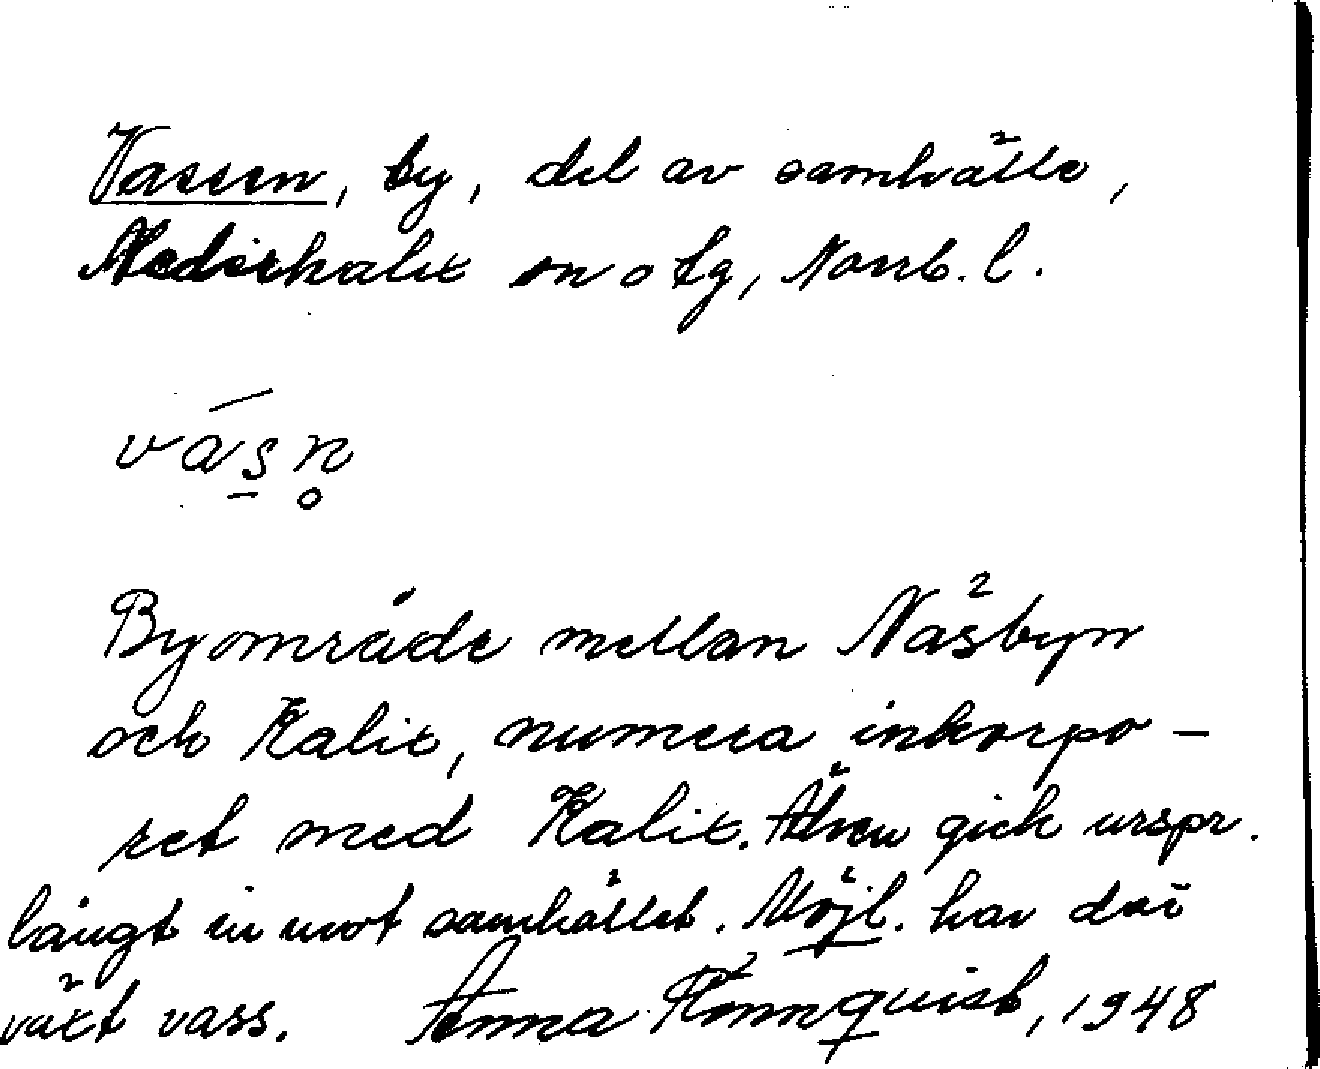 Vassen, by, del av samhälle,
Nederkalix sn o tg, Norrb. l.
vás̱n̥
Byområde mellan Näsbyn
och Kalix, numera inkorpo-
ret med Kalix. Älven gick urspr.
långt in mot samhället. Möjl. har där
växt vass. Anna Rönnquist, 1948